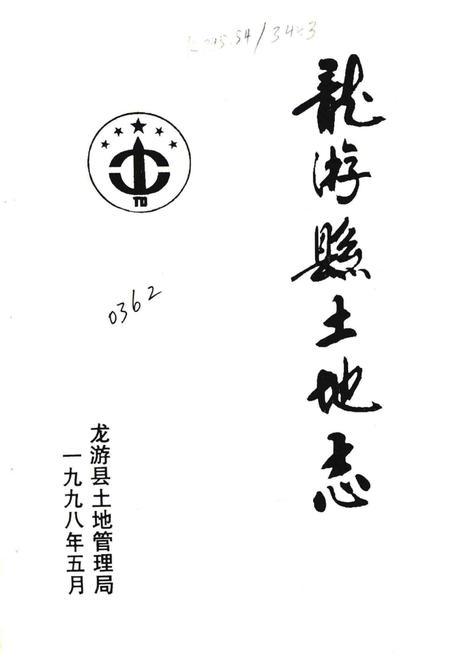 龍游縣土地志
TD
0362
龙游县土地管理局
一九九八年五月